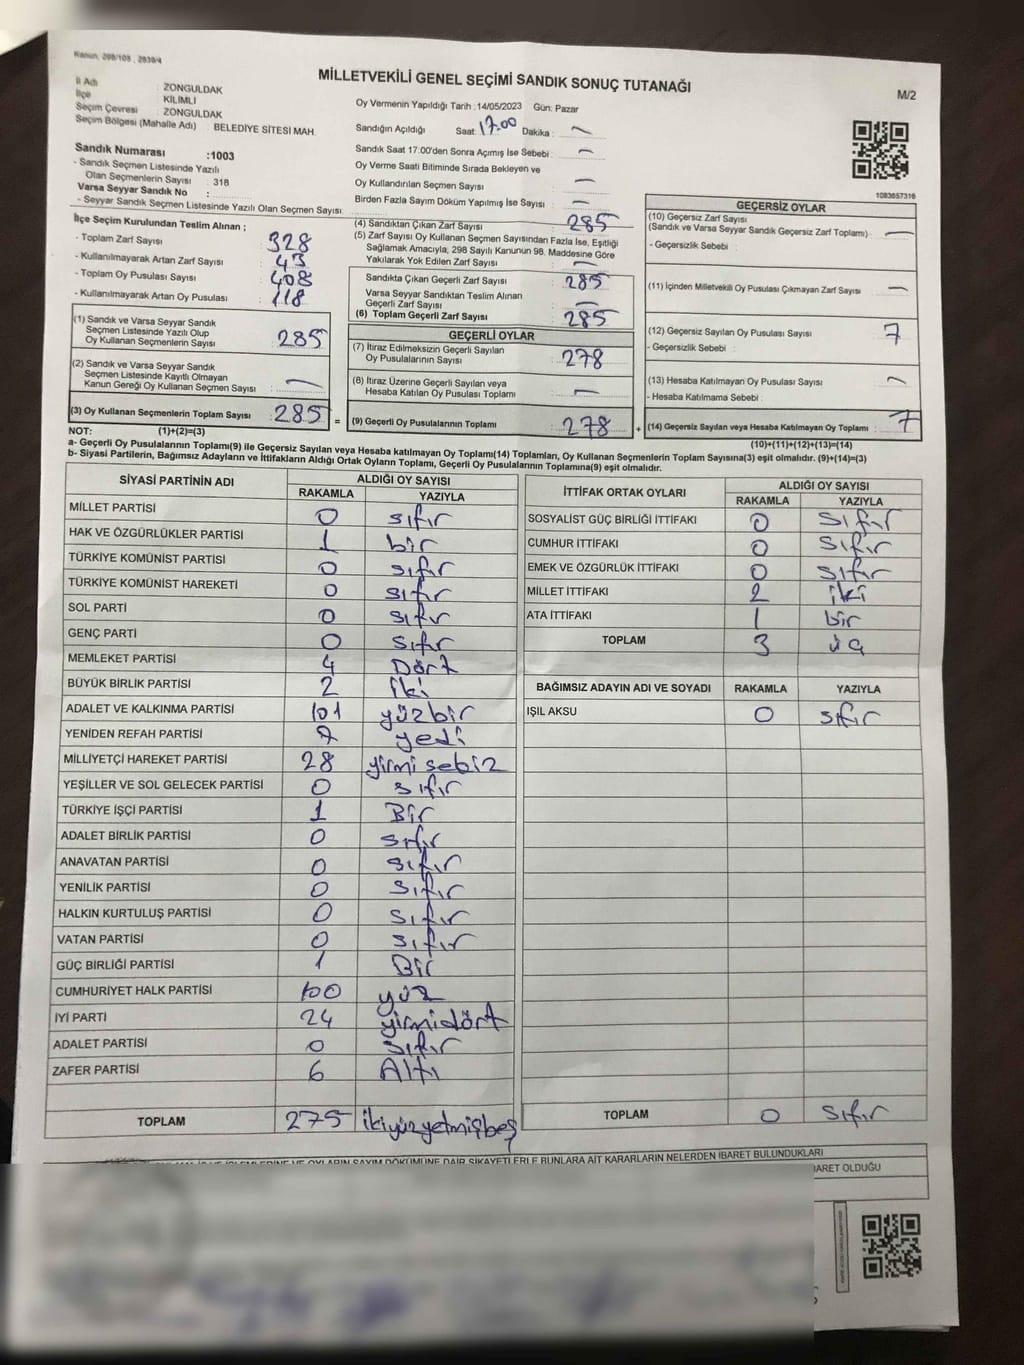 Kanun, 298/105 , 2839/4
MİLLETVEKİLİ GENEL SEÇİMİ SANDIK SONUÇ TUTANAĞI
M/2
İl Adı : ZONGULDAK
İlçe : KİLİMLİ
Seçim Çevresi : ZONGULDAK
Seçim Bölgesi (Mahalle Adı) : BELEDİYE SİTESİ MAH.
Sandık Numarası :1003
- Sandık Seçmen Listesinde Yazılı
Olan Seçmenlerin Sayısı : 318
Varsa Seyyar Sandık No :
- Seyyar Sandık Seçmen Listesinde Yazılı Olan Seçmen Sayısı:
Oy Vermenin Yapıldığı Tarih :14/05/2023 Gün: Pazar
Sandığın Açıldığı Saat: 17.00 Dakika : —
Sandık Saat 17:00'den Sonra Açımış İse Sebebi : —
Oy Verme Saati Bitiminde Sırada Bekleyen ve
Oy Kullandırılan Seçmen Sayısı : —
Birden Fazla Sayım Döküm Yapılmış İse Sayısı : —
1083657316
İlçe Seçim Kurulundan Teslim Alınan ;
- Toplam Zarf Sayısı : 328
- Kullanılmayarak Artan Zarf Sayısı : 43
- Toplam Oy Pusulası Sayısı : 408
- Kullanılmayarak Artan Oy Pusulası : 118
(1) Sandık ve Varsa Seyyar Sandık
Seçmen Listesinde Yazılı Olup
Oy Kullanan Seçmenlerin Sayısı : 285
(2) Sandık ve Varsa Seyyar Sandık
Seçmen Listesinde Kayıtlı Olmayan
Kanun Gereği Oy Kullanan Seçmen Sayısı : —
(3) Oy Kullanan Seçmenlerin Toplam Sayısı : 285 =
(4) Sandıktan Çıkan Zarf Sayısı : 285
(5) Zarf Sayısı Oy Kullanan Seçmen Sayısından Fazla İse, Eşitliği
Sağlamak Amacıyla, 298 Sayılı Kanunun 98. Maddesine Göre
Yakılarak Yok Edilen Zarf Sayısı : —
Sandıkta Çıkan Geçerli Zarf Sayısı : 285
Varsa Seyyar Sandıktan Teslim Alınan
Geçerli Zarf Sayısı : —
(6) Toplam Geçerli Zarf Sayısı : 285
GEÇERLİ OYLAR
(7) İtiraz Edilmeksizin Geçerli Sayılan
Oy Pusulalarının Sayısı : 278
(8) İtiraz Üzerine Geçerli Sayılan veya
Hesaba Katılan Oy Pusulası Toplamı : —
(9) Geçerli Oy Pusulalarının Toplamı : 278 +
GEÇERSİZ OYLAR
(10) Geçersiz Zarf Sayısı
(Sandık ve Varsa Seyyar Sandık Geçersiz Zarf Toplamı) : —
- Geçersizlik Sebebi :
(11) İçinden Milletvekili Oy Pusulası Çıkmayan Zarf Sayısı : —
(12) Geçersiz Sayılan Oy Pusulası Sayısı : 7
- Geçersizlik Sebebi :
(13) Hesaba Katılmayan Oy Pusulası Sayısı : —
- Hesaba Katılmama Sebebi :
(14) Geçersiz Sayılan veya Hesaba Katılmayan Oy Toplamı : 7
NOT: (1)+(2)=(3) (10)+(11)+(12)+(13)=(14)
a- Geçerli Oy Pusulalarının Toplamı(9) ile Geçersiz Sayılan veya Hesaba katılmayan Oy Toplamı(14) Toplamları, Oy Kullanan Seçmenlerin Toplam Sayısına(3) eşit olmalıdır. (9)+(14)=(3)
b- Siyasi Partilerin, Bağımsız Adayların ve İttifakların Aldığı Ortak Oyların Toplamı, Geçerli Oy Pusulalarının Toplamına(9) eşit olmalıdır.
SİYASİ PARTİNİN ADI ALDIĞI OY SAYISI
RAKAMLA YAZIYLA
MİLLET PARTİSİ 0 sıfır
HAK VE ÖZGÜRLÜKLER PARTİSİ 1 bir
TÜRKİYE KOMÜNİST PARTİSİ 0 sıfır
TÜRKİYE KOMÜNİST HAREKETİ 0 sıfır
SOL PARTİ 0 sıfır
GENÇ PARTİ 0 sıfır
MEMLEKET PARTİSİ 4 Dört
BÜYÜK BİRLİK PARTİSİ 2 iki
ADALET VE KALKINMA PARTİSİ 101 yüzbir
YENİDEN REFAH PARTİSİ 7 yedi
MİLLİYETÇİ HAREKET PARTİSİ 28 yirmi sebiz
YEŞİLLER VE SOL GELECEK PARTİSİ 0 sıfır
TÜRKİYE İŞÇİ PARTİSİ 1 Bir
ADALET BİRLİK PARTİSİ 0 sıfır
ANAVATAN PARTİSİ 0 sıfır
YENİLİK PARTİSİ 0 sıfır
HALKIN KURTULUŞ PARTİSİ 0 sıfır
VATAN PARTİSİ 0 sıfır
GÜÇ BİRLİĞİ PARTİSİ 1 Bir
CUMHURİYET HALK PARTİSİ 100 yüz
İYİ PARTİ 24 yirmidört
ADALET PARTİSİ 0 sıfır
ZAFER PARTİSİ 6 Altı
TOPLAM 275 ikiyüzyetmişbeş
İTTİFAK ORTAK OYLARI ALDIĞI OY SAYISI
RAKAMLA YAZIYLA
SOSYALİST GÜÇ BİRLİĞİ İTTİFAKI 0 sıfır
CUMHUR İTTİFAKI 0 sıfır
EMEK VE ÖZGÜRLÜK İTTİFAKI 0 sıfır
MİLLET İTTİFAKI 2 iki
ATA İTTİFAKI 1 bir
TOPLAM 3 üç
BAĞIMSIZ ADAYIN ADI VE SOYADI RAKAMLA YAZIYLA
IŞIL AKSU 0 sıfır
TOPLAM 0 sıfır
OYLARIN SAYIM DÖKÜMÜNE DAİR ŞİKAYETLERLE BUNLARA AİT KARARLARIN NELERDEN İBARET BULUNDUKLARI
İBARET OLDUĞU